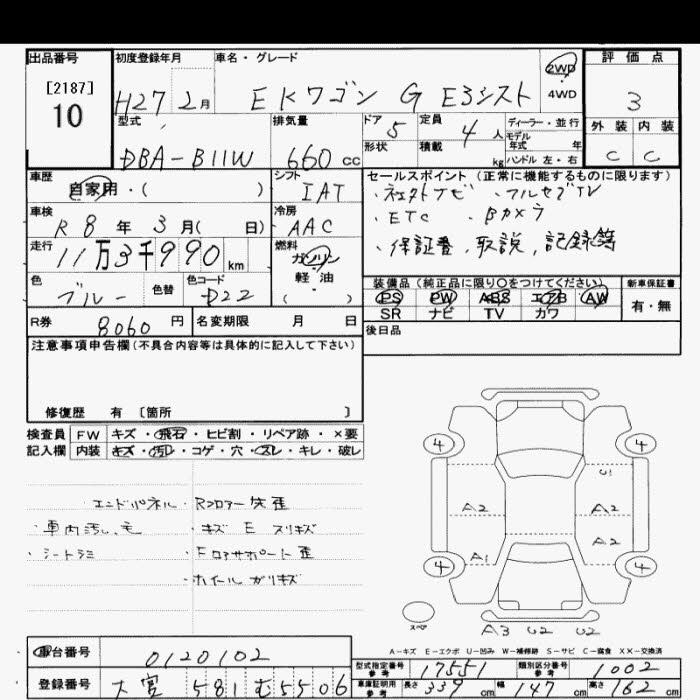 出品番号
[2187]
10
初度登録年月
H27 2月
車名・グレード
EKワゴン G Eアシスト
2WD
4WD
評価点
3
外装 内装
C C
型式
DBA-B11W
排気量
660 cc
ドア 5
形状
定員 4 人
積載 kg
ディーラー・並行
モデル年式 年式
ハンドル 左・右
車歴
自家用・( )
シフト
IAT
車検
R8年 3月( 日)
冷房
AAC
走行
11万3千990 km
燃料
ガソリン
軽・油
( )
色
ブルー
色替
色コード
D22
セールスポイント (正常に機能するものに限ります)
・社外ナビ ・フルセグTV
・ETC ・Bカメラ
・保証書、取説、記録簿
装備品 (純正品に限り○をつけてください)
PS PW ABS エアB AW
SR ナビ TV カワ
新車保証書
有・無
R券 8060 円
名変期限 月 日
後日品
注意事項申告欄(不具合内容等は具体的に記入して下さい)
修復歴 有 [箇所 ]
検査員 FW キズ・飛石・ヒビ割・リペア跡・×要
記入欄 内装 キズ・汚レ・コゲ・穴・スレ・キレ・破レ
エンドパネル・Rフロアー先歪
・車内汚レ、毛 ・キズ E スリキズ
・シートシミ ・Fロアサポート歪
・ホイールガリキズ
4 4
U1
A2 A2
A2
A1
4 4
スペア
A3 U2 U2
A-キズ E-エクボ U-凹み W-補修跡 S-サビ C-腐食 XX-交換済
車台番号
0120102
登録番号
大宮 581 む 5506
型式指定番号 参考 17551
類別区分番号 参考 1002
車庫証明用 参考 長さ 339 cm 幅 147 cm 高さ 162 cm